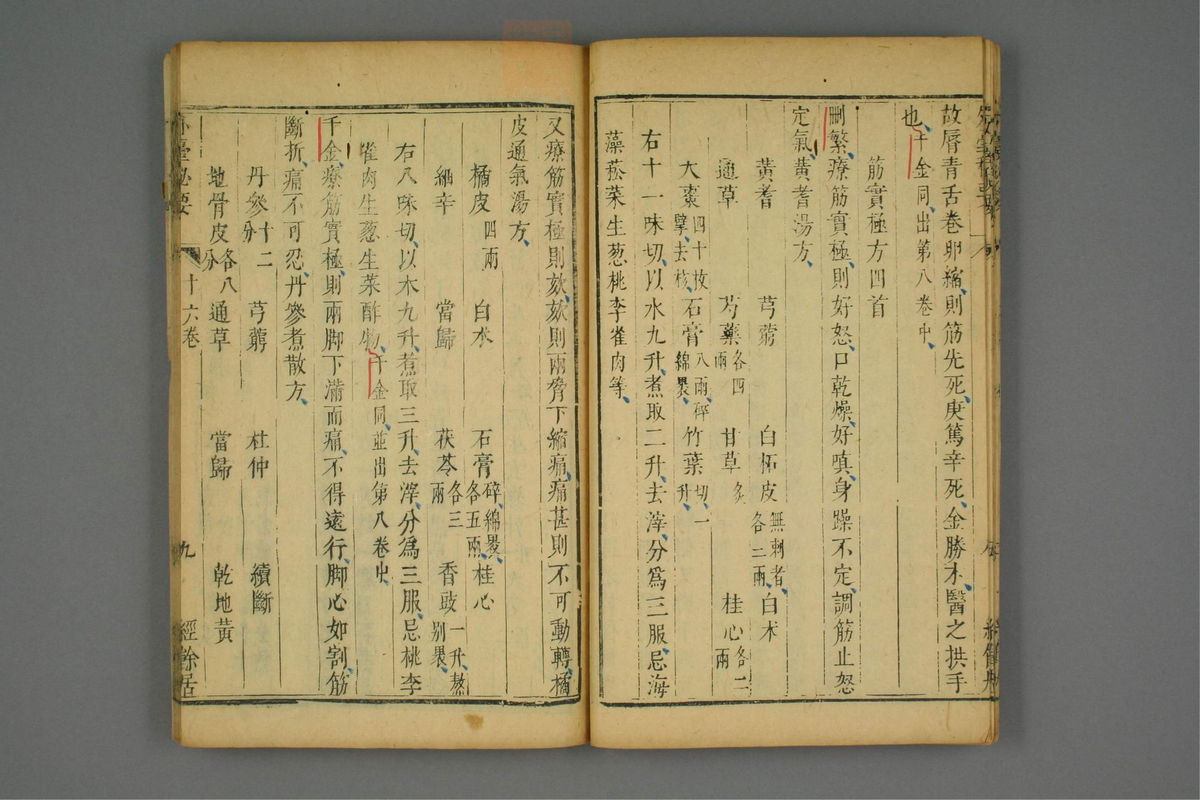 故唇青舌卷卵縮則筋先死庚篤辛死金勝木醫之拱手
也千金同出第八卷中
筋實極方四首
刪繁療筋實極則好怒口乾燥好嗔身躁不定調筋止怒
定氣黃耆湯方
黃耆 芎藭 白柘皮無刺者各三兩 白朮
通草 芍藥各四兩 甘草炙 桂心各二兩
大棗四十枚擘去核 石膏八兩碎綿裹 竹葉切一升
右十一味切以水九升煮取二升去滓分為三服忌海
藻菘菜生葱桃李雀肉等
又療筋實極則欬欬則兩脅下縮痛痛甚則不可動轉橘
皮通氣湯方
橘皮四兩 白朮 石膏碎綿裹各五兩 桂心
細辛 當歸 茯苓各三兩 香豉一升熬別裹
右八味切以水九升煮取三升去滓分為三服忌桃李
雀肉生葱生菜酢物千金同並出第八卷中
千金療筋實極則兩脚下滿而痛不得遠行脚心如割筋
斷折痛不可忍丹參煮散方
丹參十二分 芎藭 杜仲 續斷
地骨皮各八分 通草 當歸 乾地黃
外臺秘要 十六卷 九 經餘居